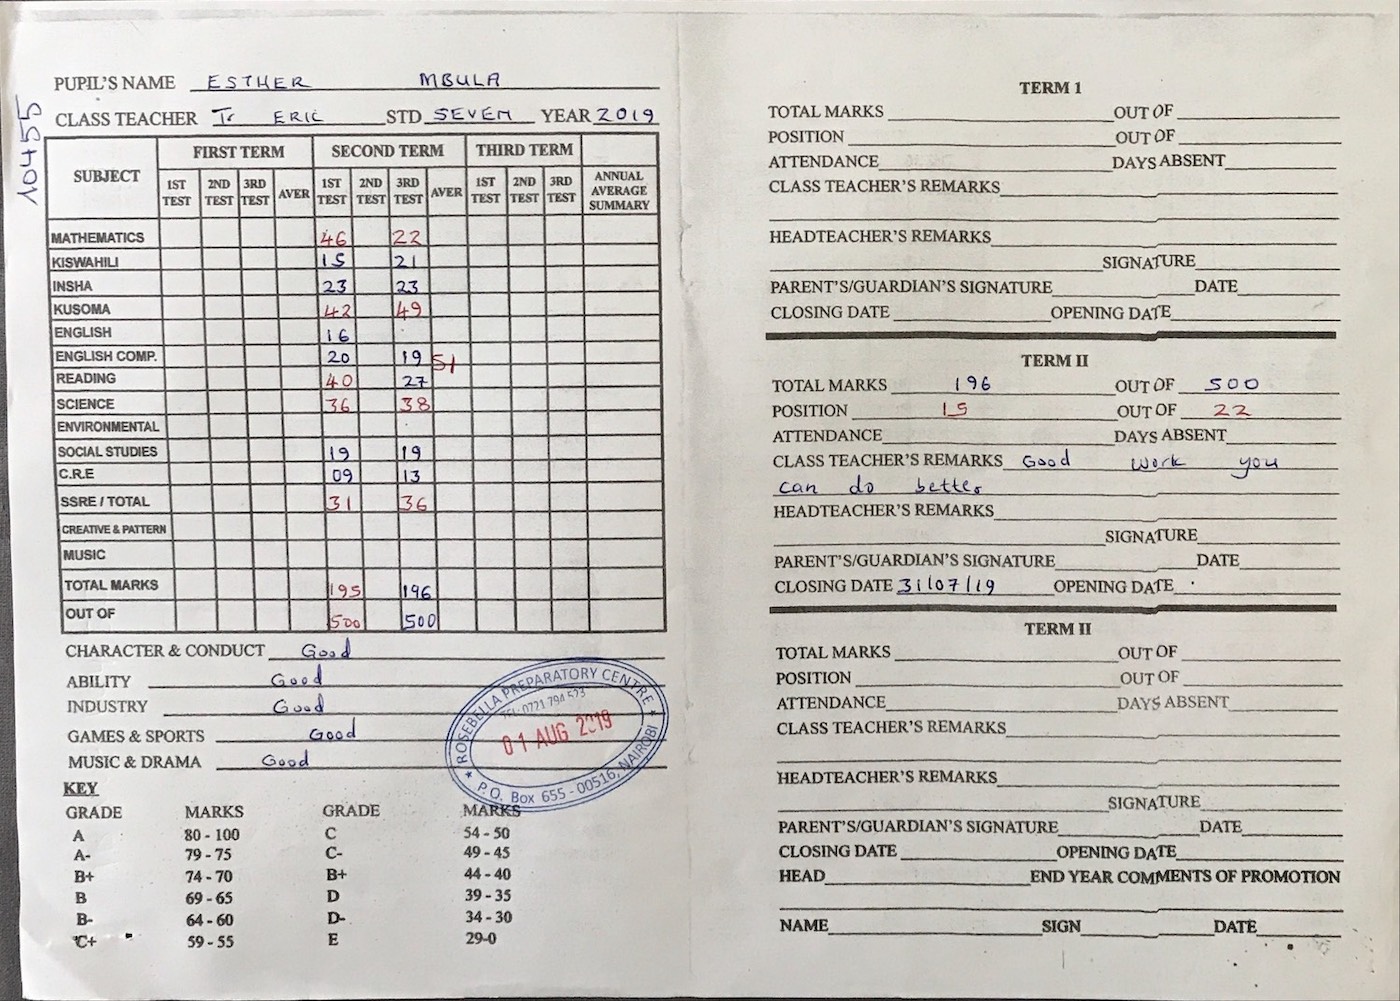 10455
PUPIL'S NAME ESTHER MBULA
CLASS TEACHER Tr ERIC STD SEVEN YEAR 2019
SUBJECT FIRST TERM SECOND TERM THIRD TERM ANNUAL AVERAGE SUMMARY
1ST TEST 2ND TEST 3RD TEST AVER 1ST TEST 2ND TEST 3RD TEST AVER 1ST TEST 2ND TEST 3RD TEST
MATHEMATICS 46 22
KISWAHILI 15 21
INSHA 23 23
KUSOMA 42 49
ENGLISH 16
ENGLISH COMP. 20 19 51
READING 40 27
SCIENCE 36 38
ENVIRONMENTAL
SOCIAL STUDIES 19 19
C.R.E 09 13
SSRE / TOTAL 31 36
CREATIVE & PATTERN
MUSIC
TOTAL MARKS 195 196
OUT OF 500 500
CHARACTER & CONDUCT Good
ABILITY Good
INDUSTRY Good
GAMES & SPORTS Good
MUSIC & DRAMA Good
ROSEBELLA PREPARATORY CENTRE
TEL: 0721 794 573
01 AUG 2019
P.O. Box 655 - 00516, NAIROBI
KEY
GRADE MARKS GRADE MARKS
A 80 - 100 C 54 - 50
A- 79 - 75 C- 49 - 45
B+ 74 - 70 B+ 44 - 40
B 69 - 65 D 39 - 35
B- 64 - 60 D- 34 - 30
C+ 59 - 55 E 29-0
TERM 1
TOTAL MARKS OUT OF
POSITION OUT OF
ATTENDANCE DAYS ABSENT
CLASS TEACHER'S REMARKS
HEADTEACHER'S REMARKS
SIGNATURE
PARENT'S/GUARDIAN'S SIGNATURE DATE
CLOSING DATE OPENING DATE
TERM II
TOTAL MARKS 196 OUT OF 500
POSITION 15 OUT OF 22
ATTENDANCE DAYS ABSENT
CLASS TEACHER'S REMARKS Good work you
can do better
HEADTEACHER'S REMARKS
SIGNATURE
PARENT'S/GUARDIAN'S SIGNATURE DATE
CLOSING DATE 31/07/19 OPENING DATE
TERM II
TOTAL MARKS OUT OF
POSITION OUT OF
ATTENDANCE DAYS ABSENT
CLASS TEACHER'S REMARKS
HEADTEACHER'S REMARKS
SIGNATURE
PARENT'S/GUARDIAN'S SIGNATURE DATE
CLOSING DATE OPENING DATE
HEAD END YEAR COMMENTS OF PROMOTION
NAME SIGN DATE